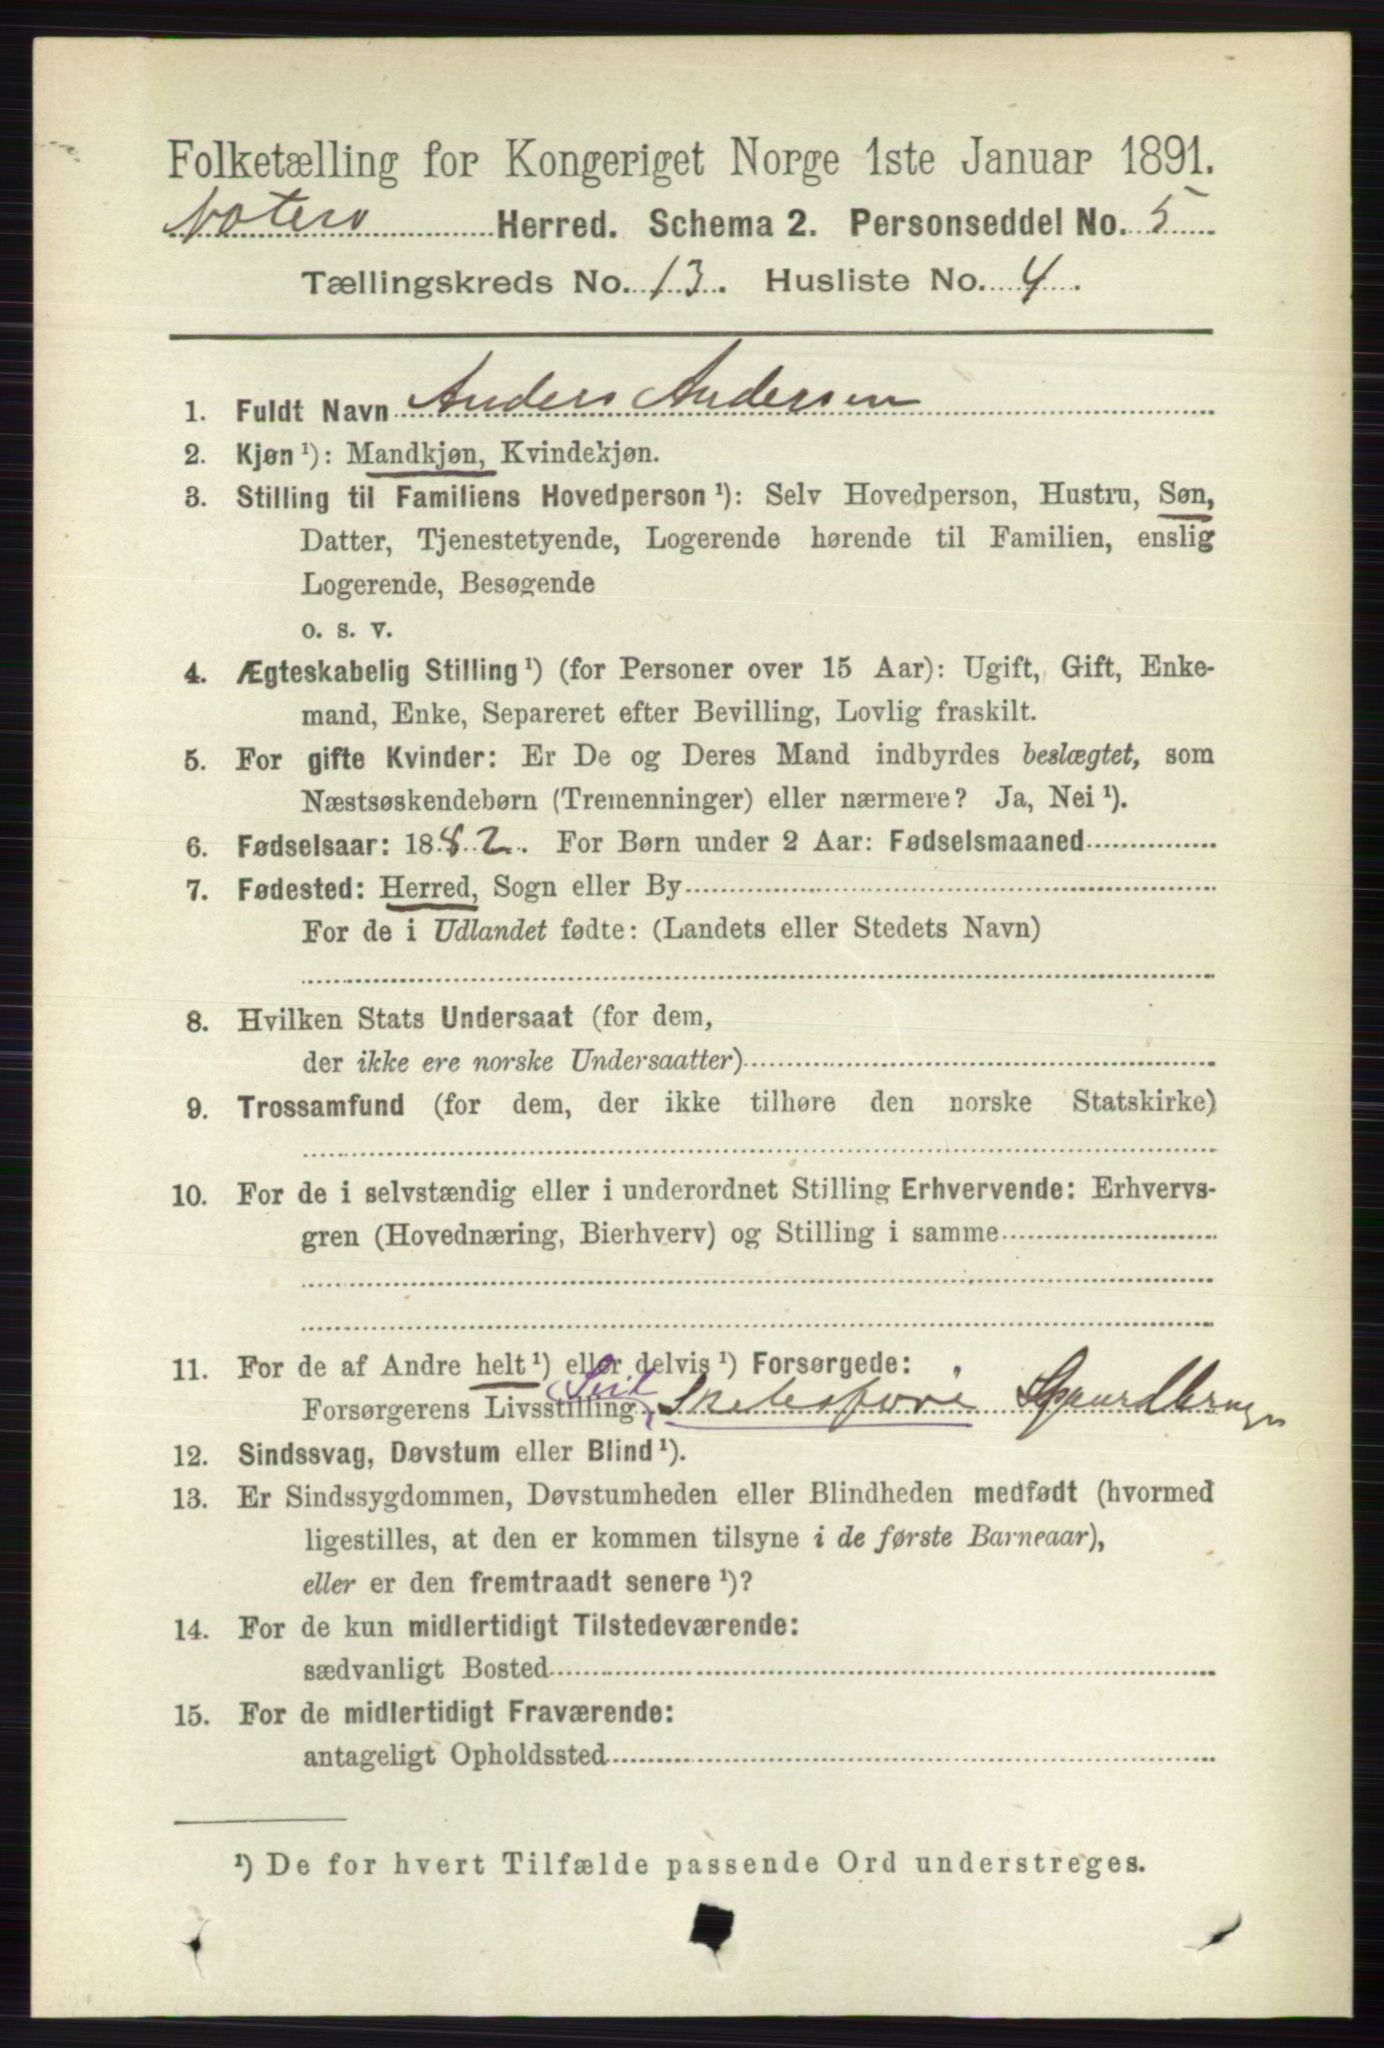 Folketælling for Kongeriget Norge 1ste Januar 1891.
Nøterø Herred. Schema 2. Personseddel No. 5
Tællingskreds No. 13. Husliste No. 4.
1. Fuldt Navn Anders Andersen
2. Kjøn ¹): Mandkjøn, Kvindekjøn.
3. Stilling til Familiens Hovedperson ¹): Selv Hovedperson, Hustru, Søn,
Datter, Tjenestetyende, Logerende hørende til Familien, enslig
Logerende, Besøgende
o. s. v.
4. Ægteskabelig Stilling ¹) (for Personer over 15 Aar): Ugift, Gift, Enke-
mand, Enke, Separeret efter Bevilling, Lovlig fraskilt.
5. For gifte Kvinder: Er De og Deres Mand indbyrdes beslægtet, som
Næstsøskendebørn (Tremenninger) eller nærmere? Ja, Nei ¹).
6. Fødselsaar: 1882. For Børn under 2 Aar: Fødselsmaaned
7. Fødested: Herred, Sogn eller By
For de i Udlandet fødte: (Landets eller Stedets Navn)
8. Hvilken Stats Undersaat (for dem,
der ikke ere norske Undersaatter)
9. Trossamfund (for dem, der ikke tilhøre den norske Statskirke)
10. For de i selvstændig eller i underordnet Stilling Erhvervende: Erhvervs-
gren (Hovednæring, Bierhverv) og Stilling i samme
11. For de af Andre helt ¹) eller delvis ¹) Forsørgede:
Forsørgerens Livsstilling
12. Sindssvag, Døvstum eller Blind ¹).
13. Er Sindssygdommen, Døvstumheden eller Blindheden medfødt (hvormed
ligestilles, at den er kommen tilsyne i de første Barneaar),
eller er den fremtraadt senere ¹)?
14. For de kun midlertidigt Tilstedeværende:
sædvanligt Bosted
15. For de midlertidigt Fraværende:
antageligt Opholdssted
¹) De for hvert Tilfælde passende Ord understreges.